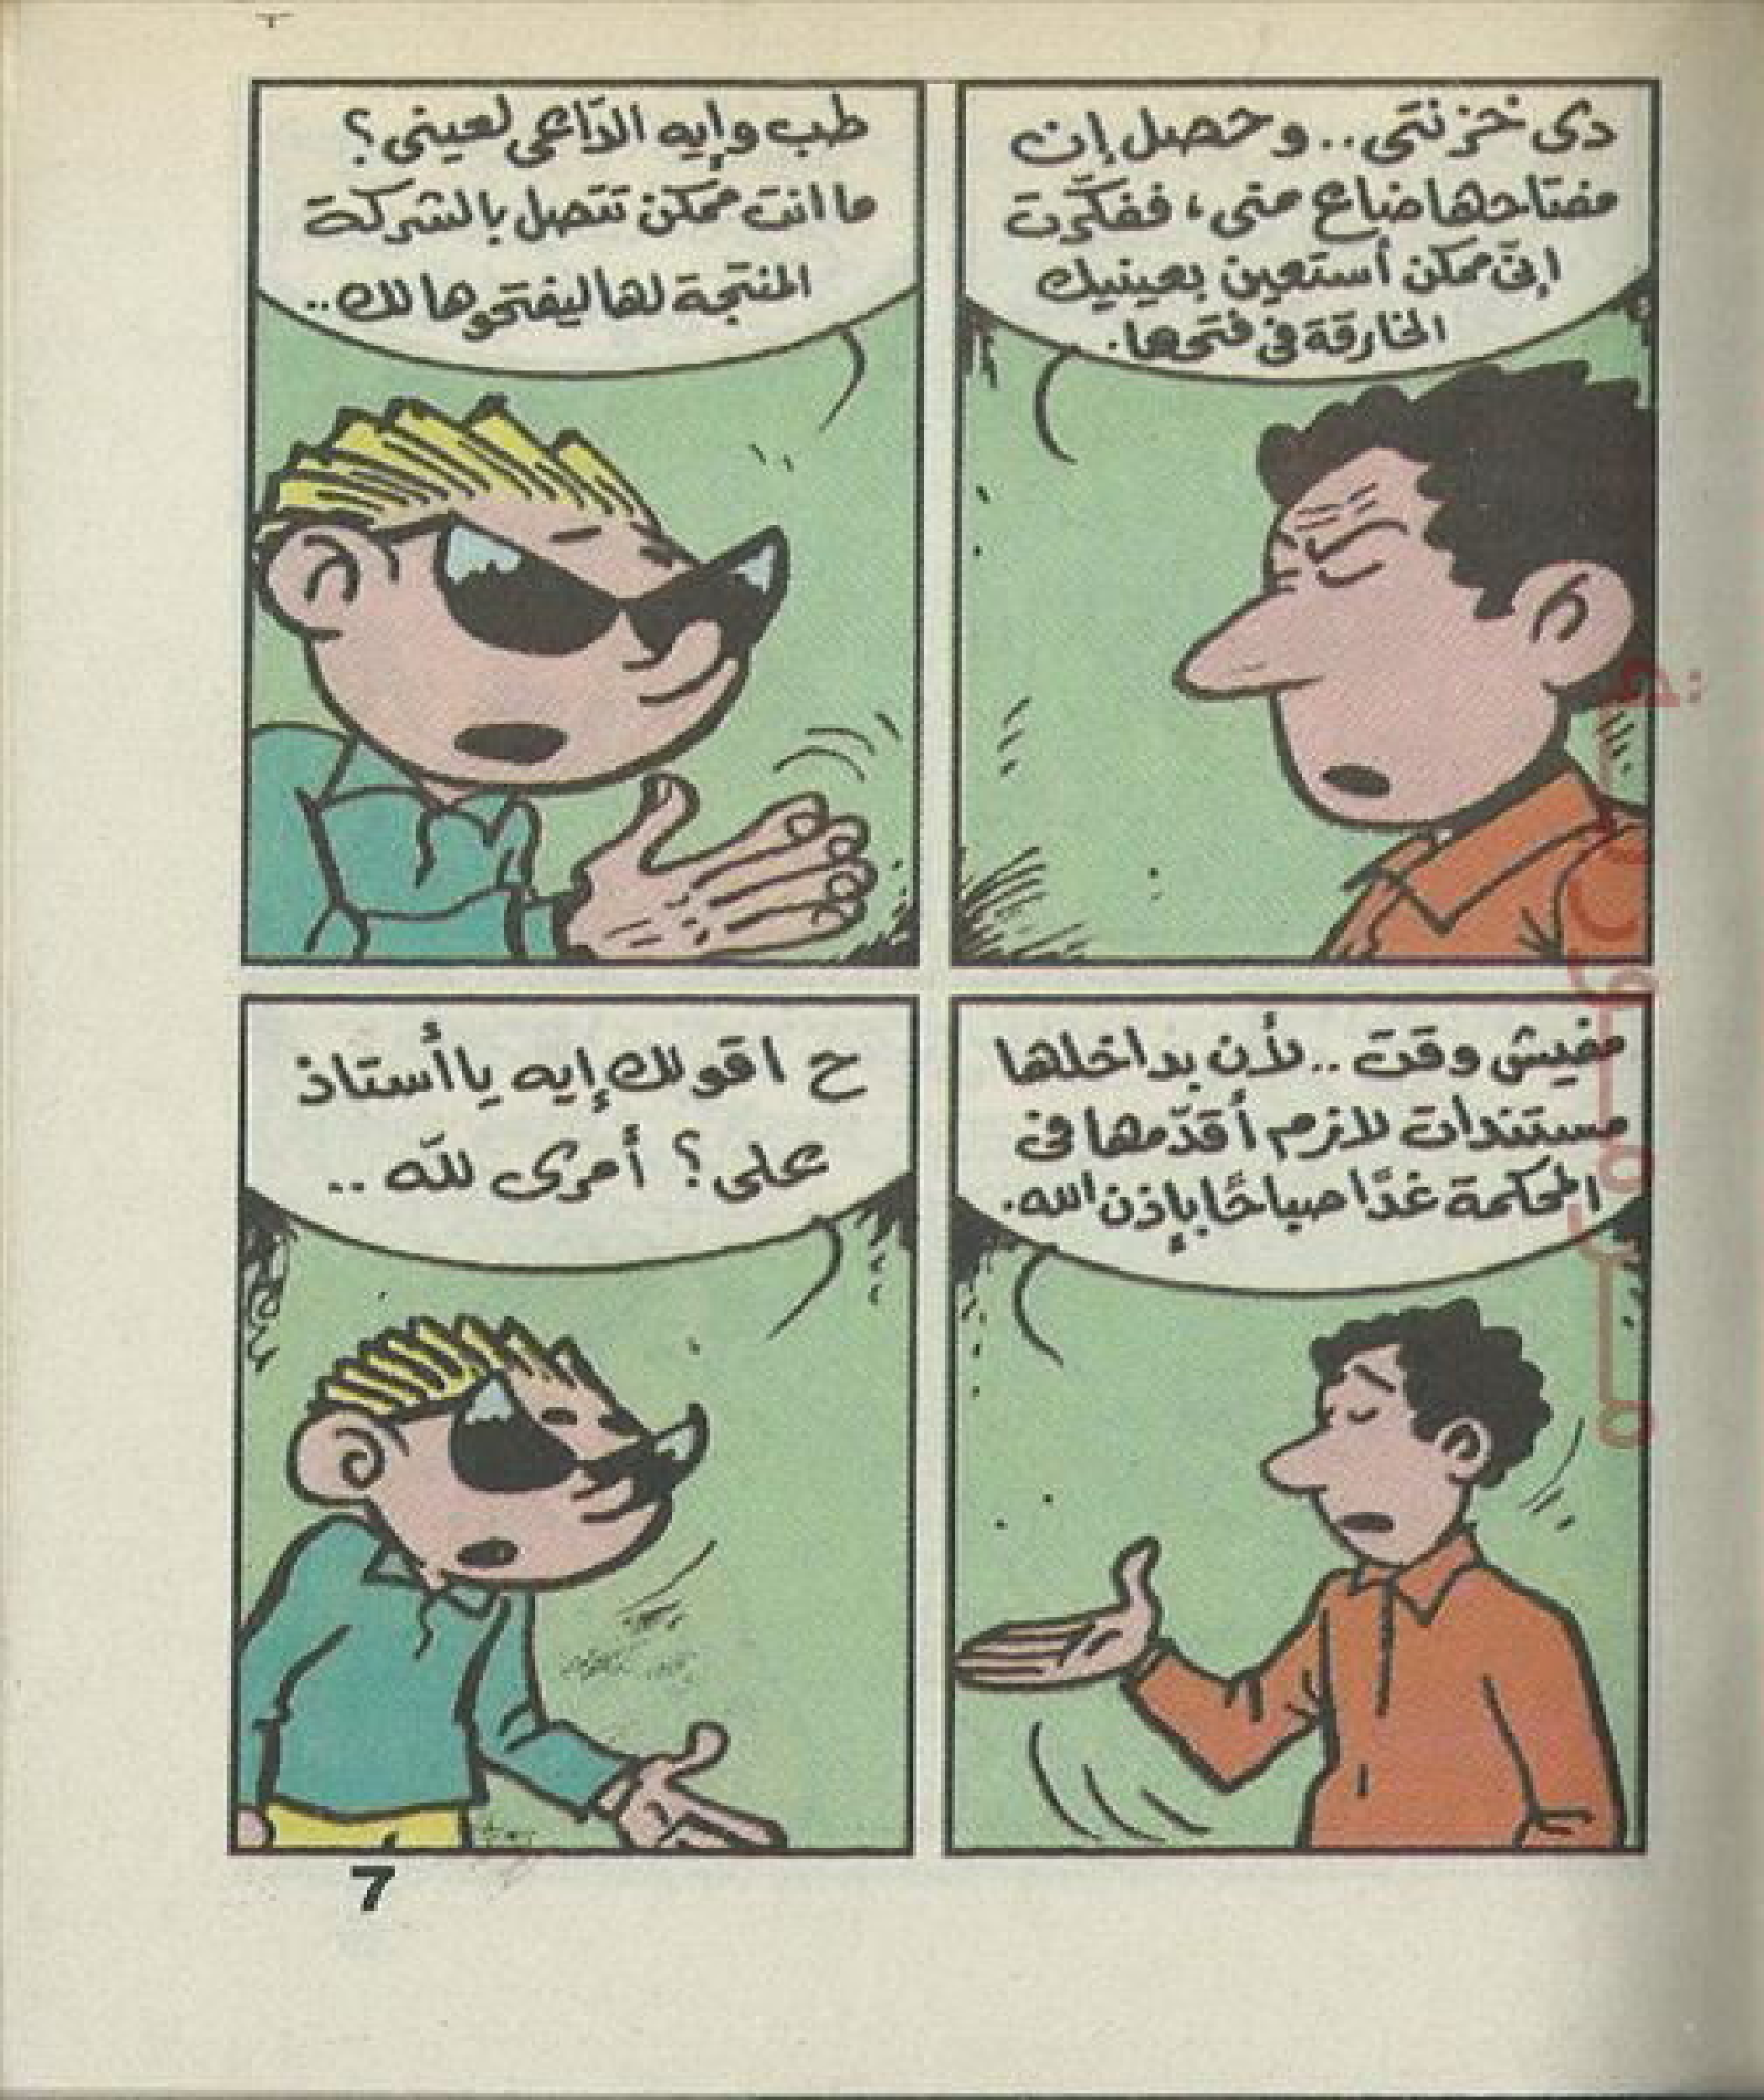 دى خزنتى.. وحصل إن
مفتاحها ضاع منى، ففكّرت
إنى ممكن أستعين بعينيك
الخارقة فى فتحها.
طب وإيه الدّاعى لعينى؟
ما انت ممكن تتصل بالشركة
المنتجة لها ليفتحوها لك..
مفيش وقت.. لأن بداخلها
مستندات لازم أقدّمها فى
المحكمة غدًا صباحًا بإذن الله.
ح اقولك إيه يا أستاذ
على؟ أمرى لله..
7